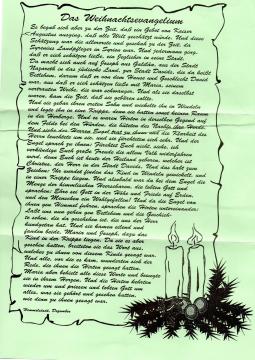 Das Weihnachtsevangelium
Es begab sich aber zu der Zeit, daß ein Gebot von Kaiser
Augustus ausging, daß alle Welt geschätzt würde. Und diese
Schätzung war die allererste und geschah zu der Zeit, da
Syrenius Landpfleger in Syrien war. Und jedermann ging,
daß er sich schätzen ließe, ein jeglicher in seine Stadt.
Da macht sich auch auf Joseph aus Galiläa, aus der Stadt
Nazareth in das jüdische Land, zur Stadt Davids, die da heißt
Bethlehem, darum daß er von dem Hause und Geschlecht David
war, auf daß er sich schätzen ließe mit Maria, seinem
vertrauten Weibe, die war schwanger. Und als sie daselbst
waren, kam die Zeit, daß sie gebären sollte.
Und sie gebar ihren ersten Sohn und wickelte ihn in Windeln
und legte ihn in eine Krippe, denn sie hatten sonst keinen Raum
in der Herberge. Und es waren Hirten in derselben Gegend auf
dem Felde bei den Hürden, die hüteten des Nachts ihre Herde.
Und siehe des Herren Engel trat zu ihnen und die Klarheit des
Herrn leuchtete um sie, und sie fürchteten sich sehr. Und der
Engel sprach zu ihnen: Fürchtet Euch nicht, siehe, ich
verkündige Euch große Freude die allem Volk widerfahren
wird, denn Euch ist heute der Heiland geboren, welcher ist
Christus, der Herr in der Stadt Davids. Und das habt zum
Zeichen: Ihr werdet finden das Kind in Windeln gewickelt, und
in einer Krippe liegen. Und alsobald war da bei dem Engel die
Menge der himmlischen Heerscharen, die lobten Gott und
sprachen: Ehre sei Gott in der Höhe und Friede auf Erden,
und den Menschen ein Wohlgefallen! Und da die Engel von
ihnen gen Himmel fuhren, sprachen die Hirten untereinander:
Laßt uns nun gehen gen Bethlehem und die Geschich-
te sehen, die da geschehen ist, die uns der Herr
kundgetan hat. Und sie kamen eilend und
fanden beide, Maria und Joseph, dazu das
Kind in der Krippe liegen. Da sie es aber
gesehen hatten, breiteten sie das Wort aus,
welches zu ihnen von diesem Kinde gesagt war.
Und alle, vor die es kam, wunderten sich der
Rede, die ihnen die Hirten gesagt hatten.
Maria aber behielt alle diese Worte und bewegte
sie in ihrem Herzen. Und die Hirten kehrten
wieder um und priesen und lobten Gott um
alles, was sie gehört und gesehen hatten,
wie denn zu ihnen gesagt war.